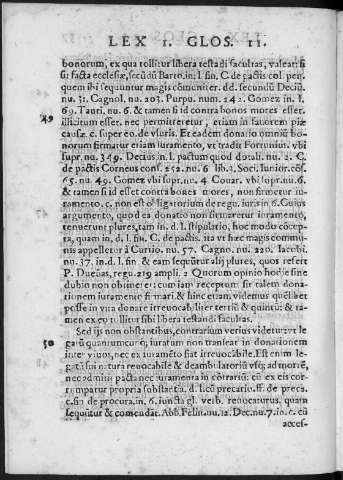 LEX 1. GLOS. 11.
bonorum, ex qua tollitur libera testādi facultas, valeat: si
sit facta ecclesiæ, secūdū Barto. in. l. fin. C. de pactis col. pen.
quem ibi sequuntur magis cōmuniter. dd. secundū Deciū
nu. 31. Cagnol. nu. 203. Purpu. num. 242. Gomez in. l.
69. Tauri. nu. 6. & tamen si id contra bonos mores esset.
49 illicitum esset. nec permitteretur, etiam in fauorem piæ
causæ. c. super eo. de vsuris. Et eadem donatio omniū bo
norum firmatur etiam iuramento, vt tradit Fortuniun. vbi
supr. nu. 349. Decius in. l. pactum quod dotali. nu. 2. C.
de pactis Corneus cons. 252. nu. 6 lib. 1. Soci. Iunior. cōs.
65. nu. 49. Gomez vbi supr. nu. 4 Couar. vbi supr. nu. 6.
& tamen si id esset contra bonos mores, non firmetur iu
ramento. c. non est obligatorium de regu. iuris in 6. Cuius
argumento, quod ea donatio non firmaretur iuramento,
tenuerunt plures, tam in. d. l. stipulatio, hac modo cōcep
ta, quam in, d. l. fin. C. de pactis. ita vt hæc magis commu
nis appelletur à Curtio. nu. 57. Cagno. nu. 220. Iacobi.
nu. 37. in. d. l. fin. & eam sequūtur alij plures, quos refert
P. Dueñas, regu. 219 ampli. 2 Quorum opinio hodie sine
dubio non obtinet: cum iam receptum sit talem dona
tionem iuramento firmari, & sinc etiam videmus quēlibet
posse in vita donare irreuocabiliter tertiū & quintū: & ta
men ex eo tollitur sibi libera testandi facultas.
Sed ijs non obstantibus, contrarium verius videtur: vt le
50 gatū quamuincumq; iuratum non transeat in donationem
inter viuos, nec ex iuramēto fiat irreuocabile. Est enim le
gatū sui natura reuocabile & deambulatoriū vsq; ad mortē,
nec admittit pacta nec iuramenta in cōtrariū: cū ex eis cor
rumpatur propria substantia. d. l. cū precario. ff. de preca.
c. fin de procura, in. 6. iuncta gl. verb. reuocaturus. quam
sequūtur & comendāt. Abb. Felin. nu. 12. Dec. nu. 7. in. c. cū
acces-